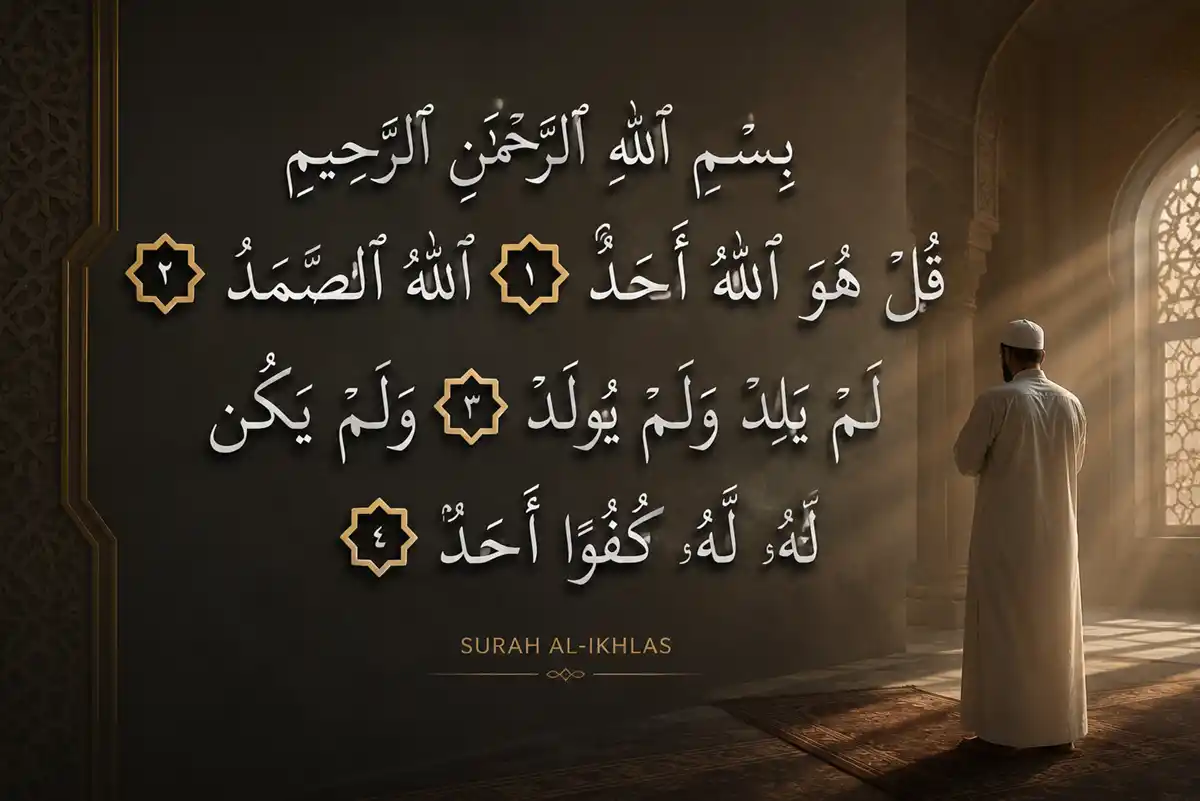 بِسْمِ ٱللَّهِ ٱلرَّحْمَٰنِ ٱلرَّحِيمِ
قُلْ هُوَ ٱللَّهُ أَحَدٌ ١ ٱللَّهُ ٱلصَّمَدُ ٢
لَمْ يَلِدْ وَلَمْ يُولَدْ ٣ وَلَمْ يَكُن
لَّهُۥ لَّهُۥ كُفُوًا أَحَدٌ ٤
SURAH AL-IKHLAS